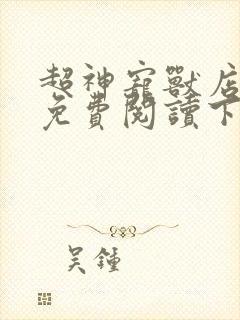 超神寵獸店
免費閱讀下
吳鍾